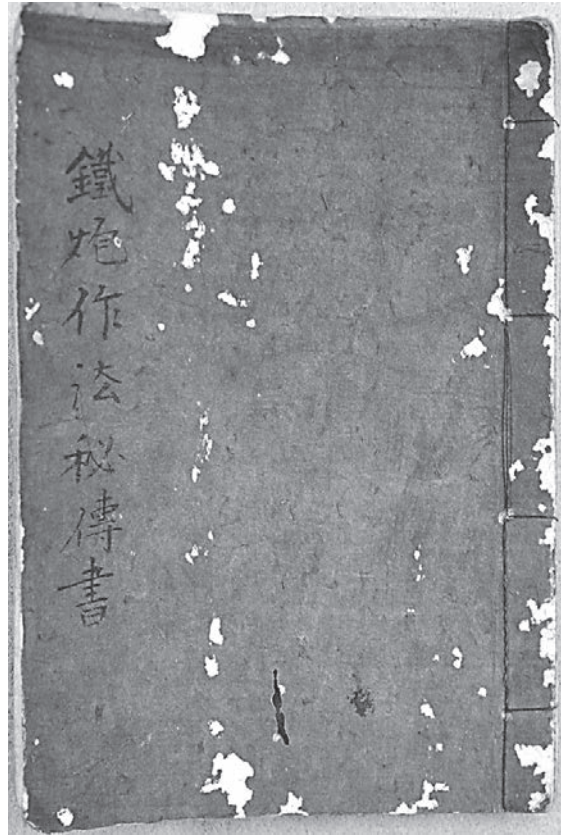 鐵炮作法秘傳書